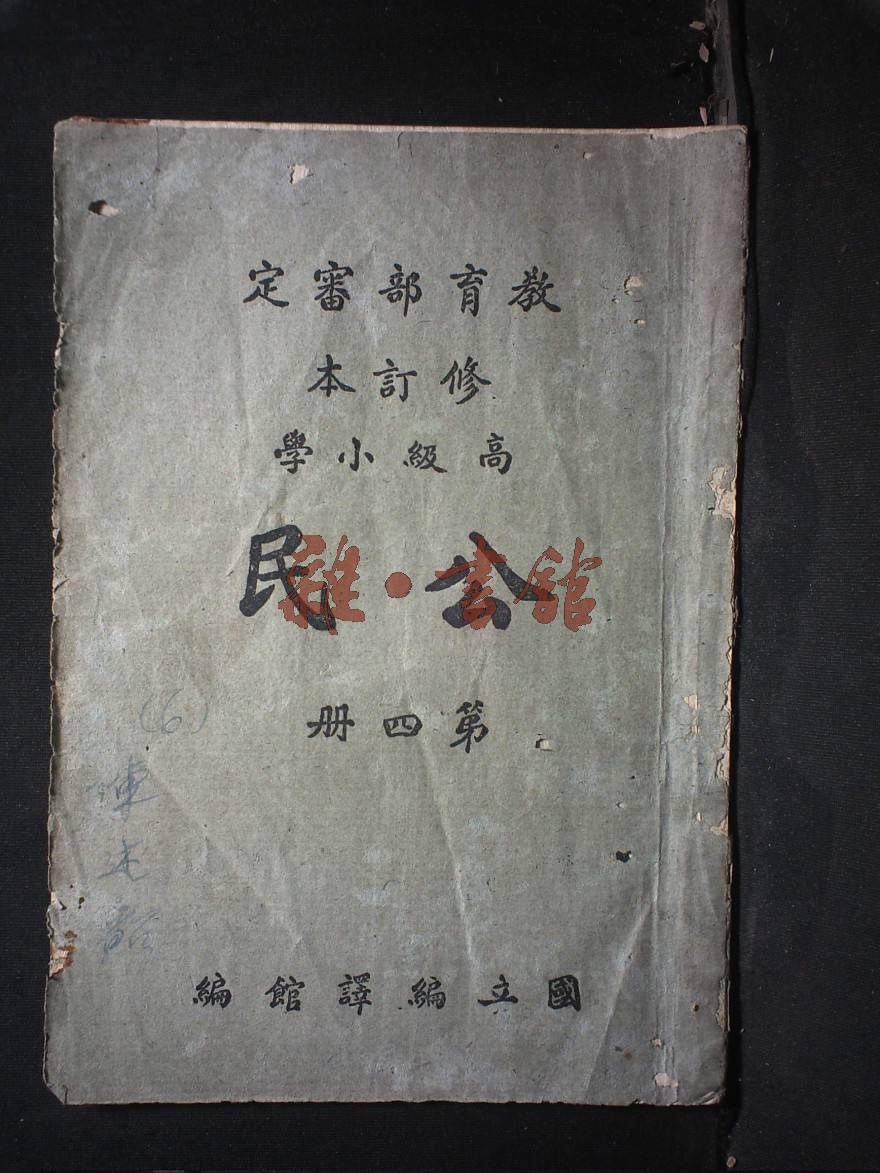 教育部審定
修訂本
高級小學
公民
雜·書館
第四册
(6)
國立編譯館編